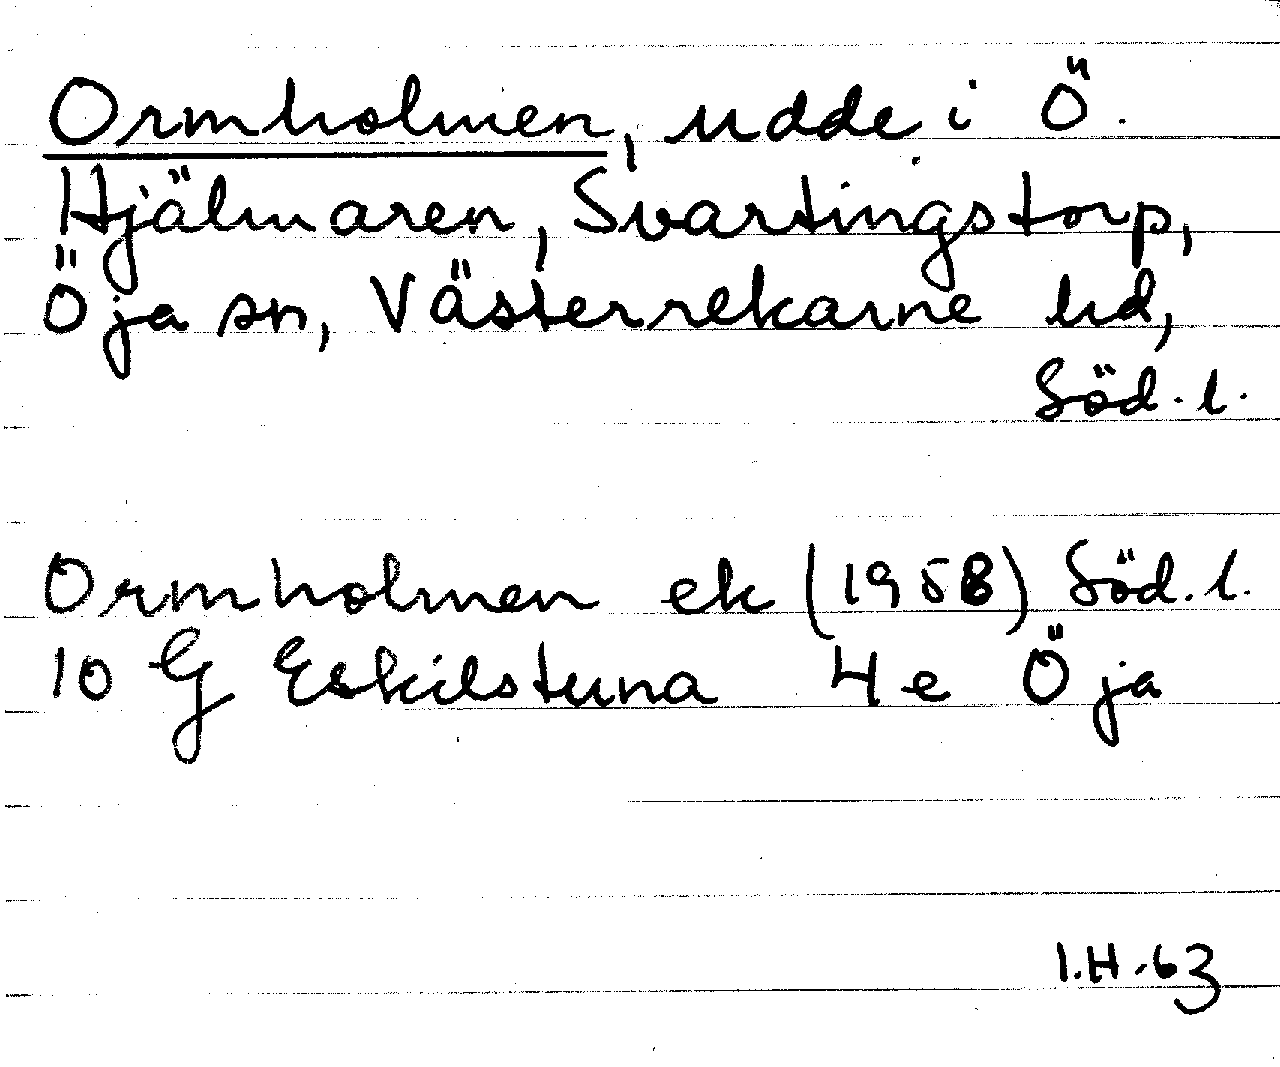 Ormholmen, udde i Ö.
Hjälmaren, Svartingstorp,
Öja sn, Västerrekarne hd,
Söd.l.
Ormholmen ek (1958) Söd.l.
10 G Eskilstuna 4e Öja
I.H.63